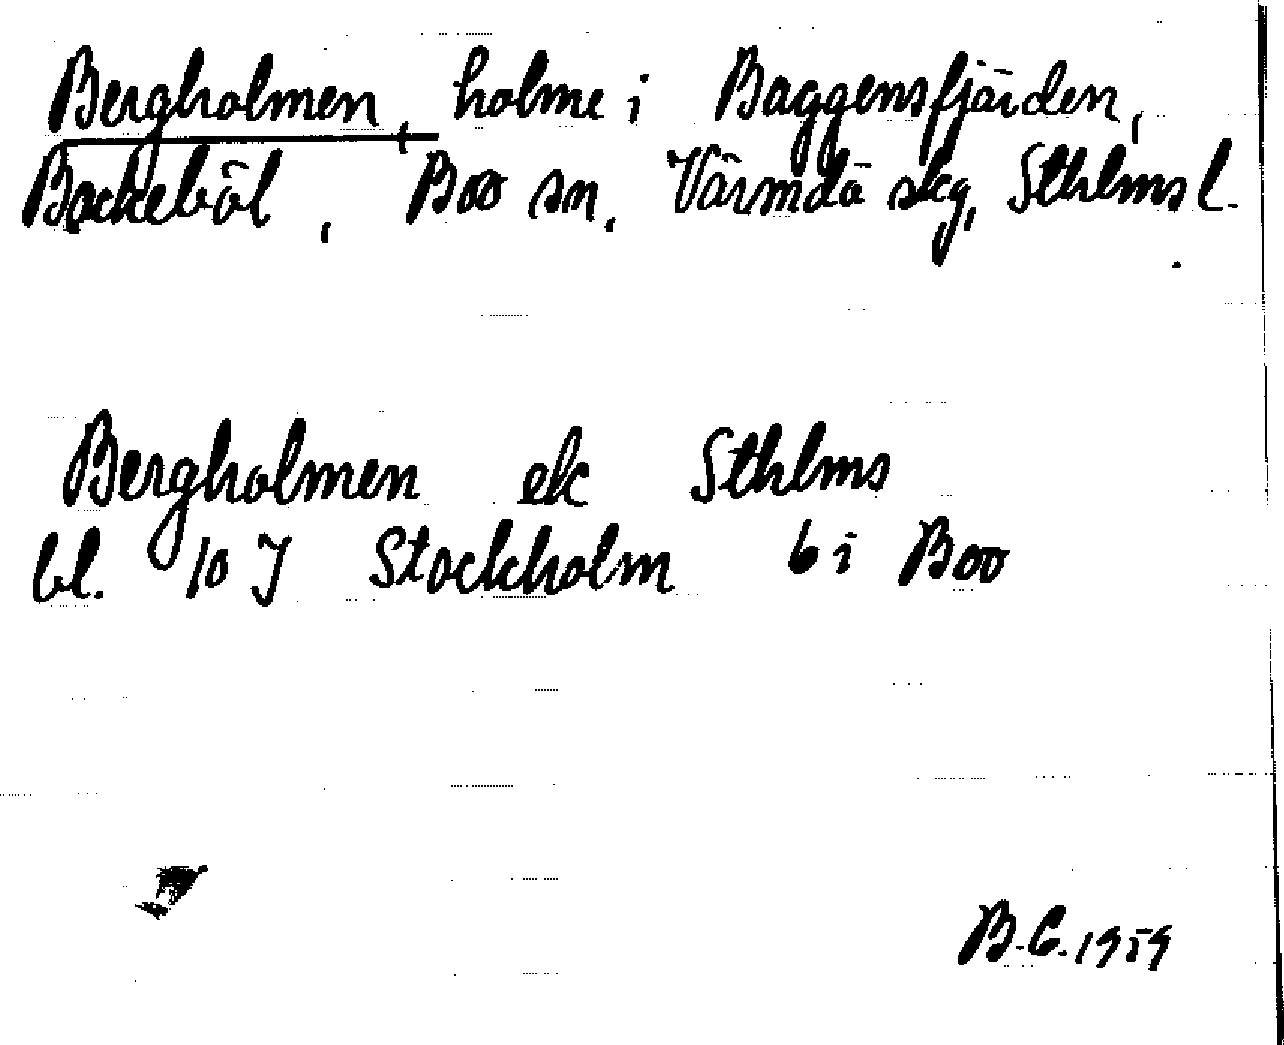 Bergholmen, holme i Baggensfjärden,
Backeböl, Boo sn, Värmdö skg, Sthlms l.
Bergholmen ek Sthlms
bl. 10 J Stockholm 6 i Boo
B.C. 1959